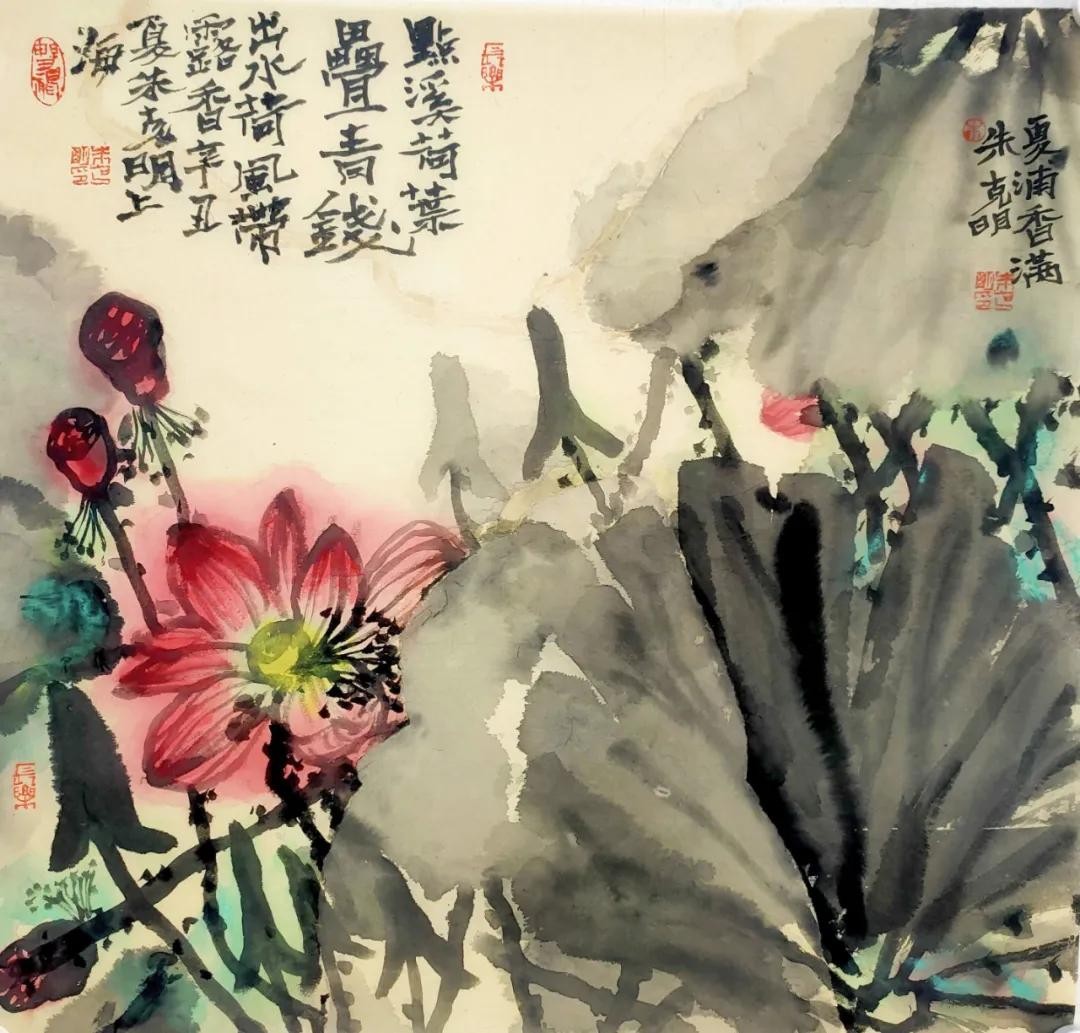 夏浦香满
朱克明
長樂
點溪荷葉
疊青錢
出水荷風帶
露香辛丑
夏朱克明上
海
長樂